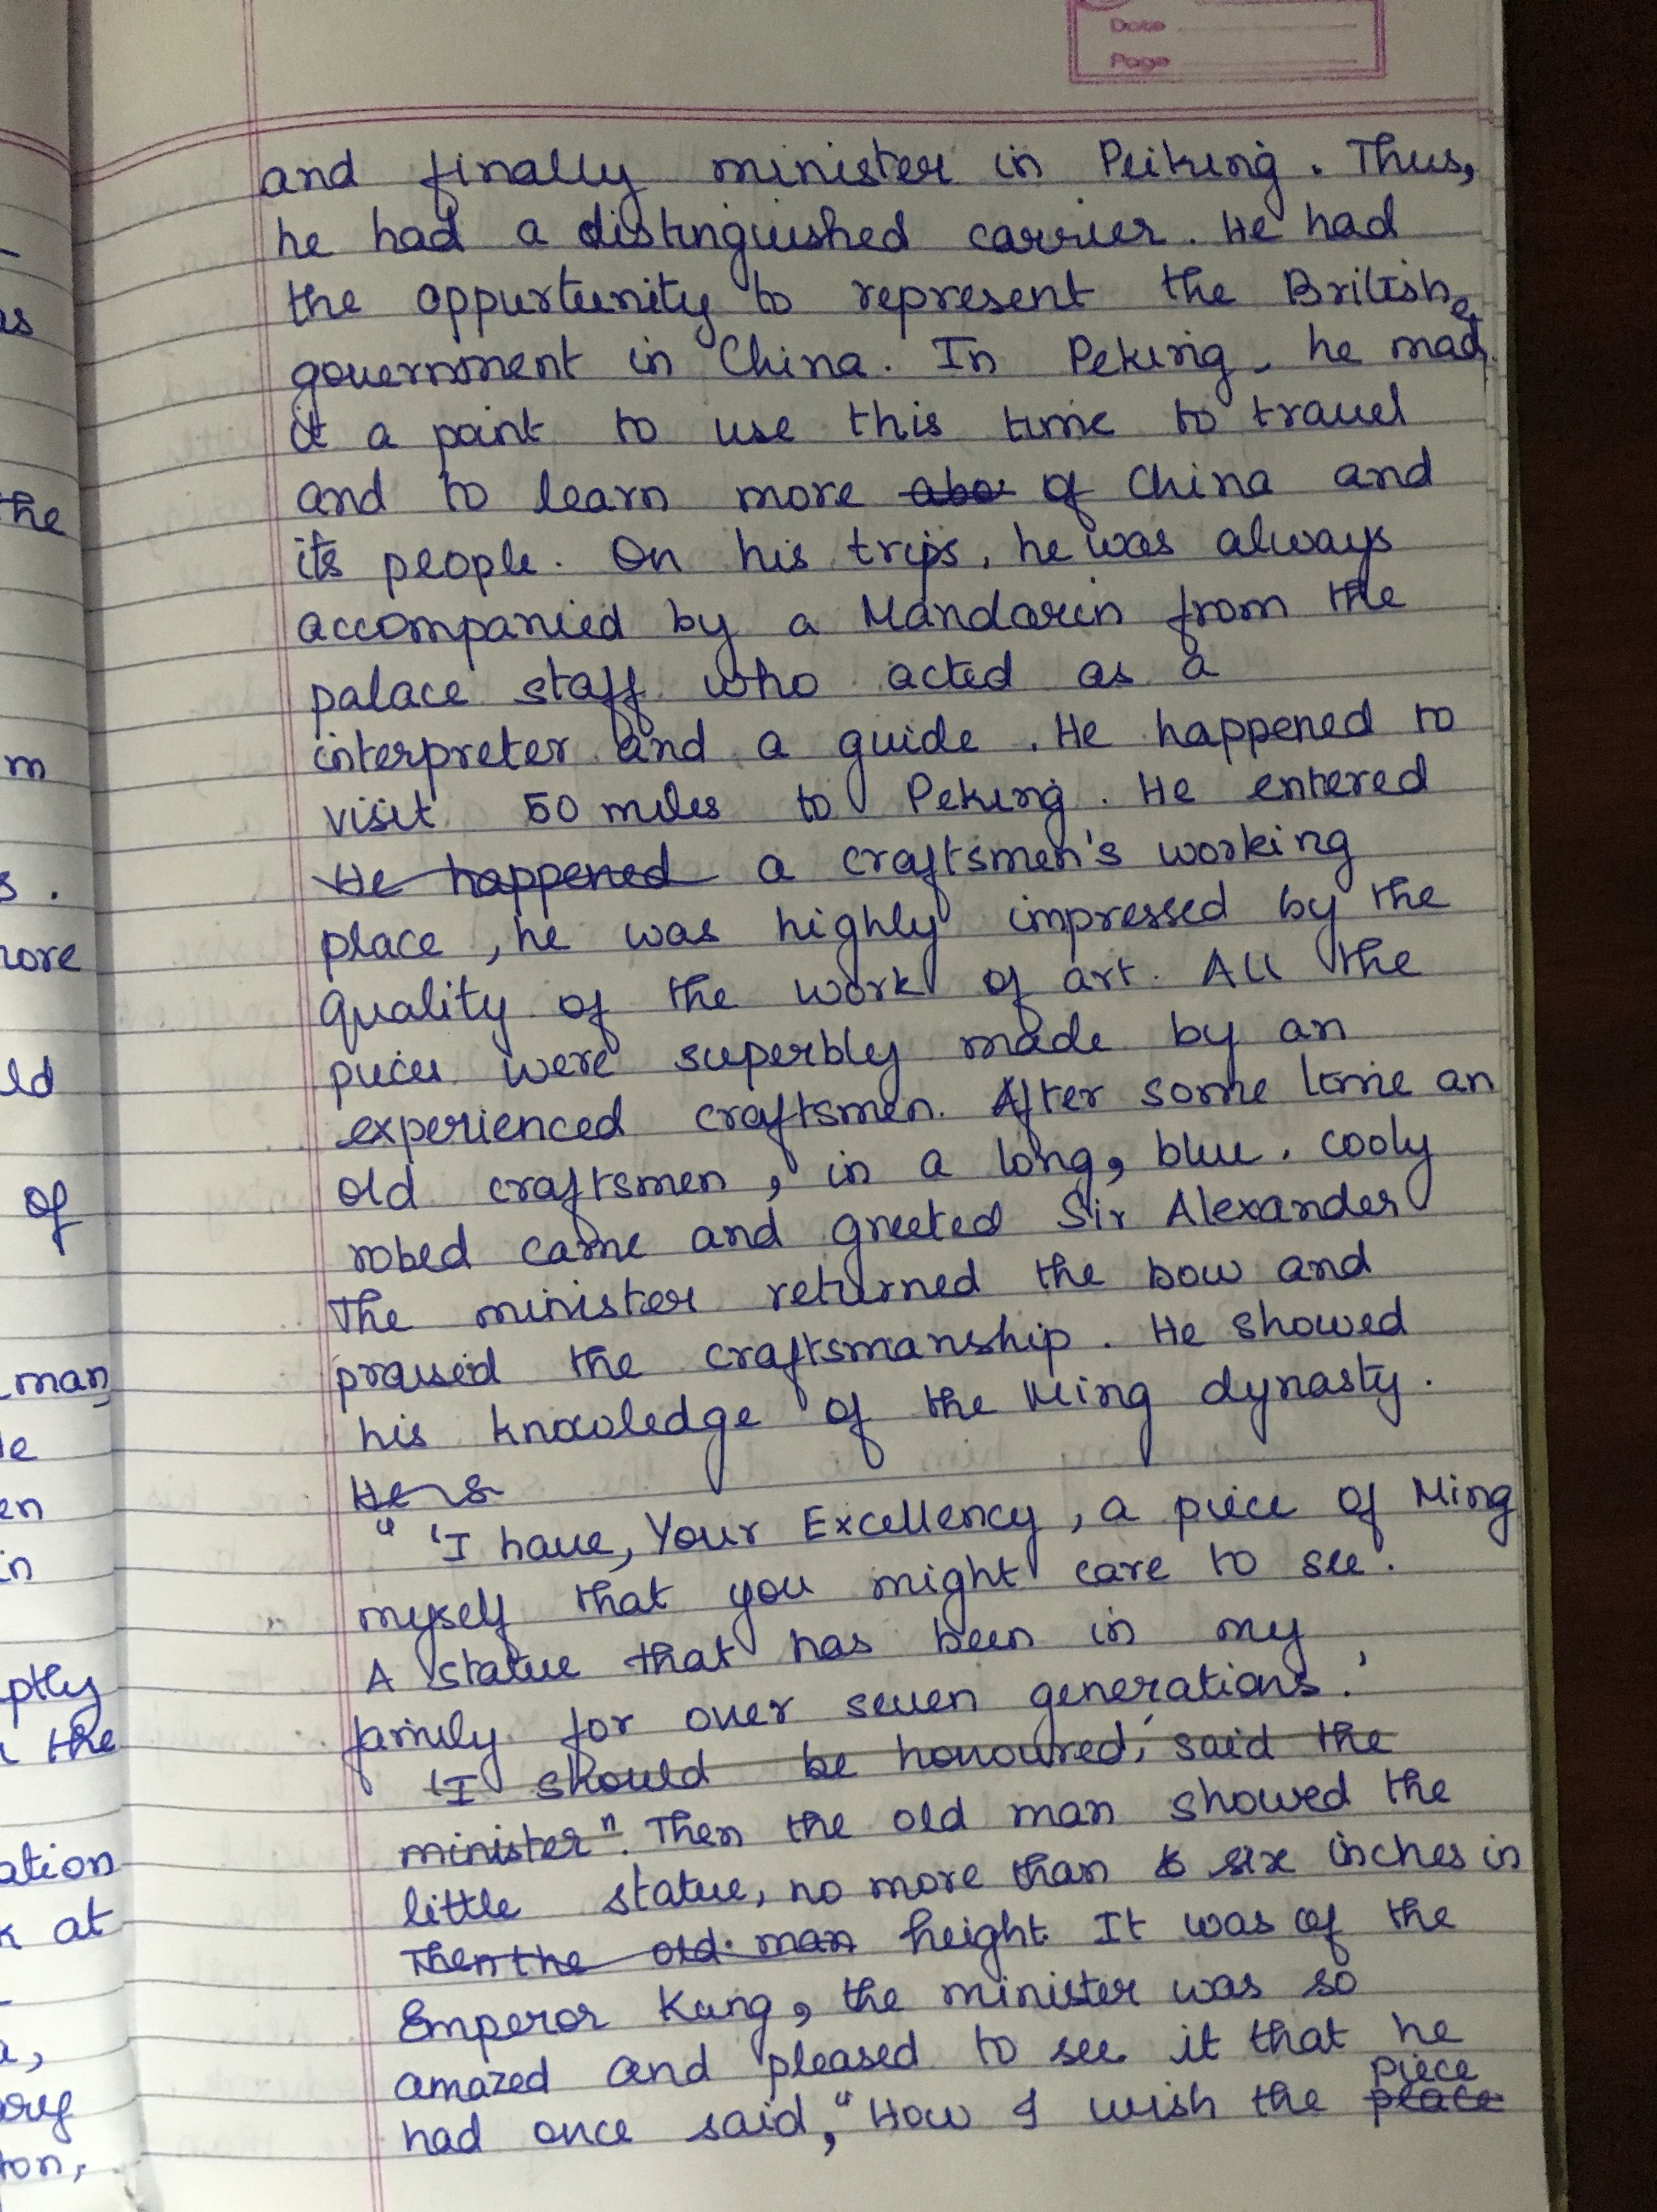 Date
Page
and finally minister in Peiking. Thus,
he had a distinguished carrier. He had
the oppurtunity to represent the British
government in China. In Peking, he made
it a point to use this time to travel
and to learn more abo of China and
its people. On his trips, he was always
accompanied by a Mandarin from the
palace staff who acted as a
interpreter and a guide. He happened to
visit 50 miles to Peking. He entered
He happened a craftsmen's working
place, he was highly impressed by the
quality of the work of art. All the
pieces were superbly made by an
experienced craftsmen. After some time an
old craftsmen, in a long, blue, cooly
robed came and greeted Sir Alexander
The minister returned the bow and
praised the craftsmanship. He showed
his knowledge of the Ming dynasty.
He s
" 'I have, Your Excellency, a piece of Ming
myself that you might care to see.
A statue that has been in my
family for over seven generations.'
'I should be honoured,' said the
minister". Then the old man showed the
little statue, no more than six inches in
Then the old man height. It was of the
Emperor Kung, the minister was so
amazed and pleased to see it that he
had once said, "How I wish the place piece
as
the
m
s.
more
ld
of
man
le
en
in
ptly
the
ation
k at